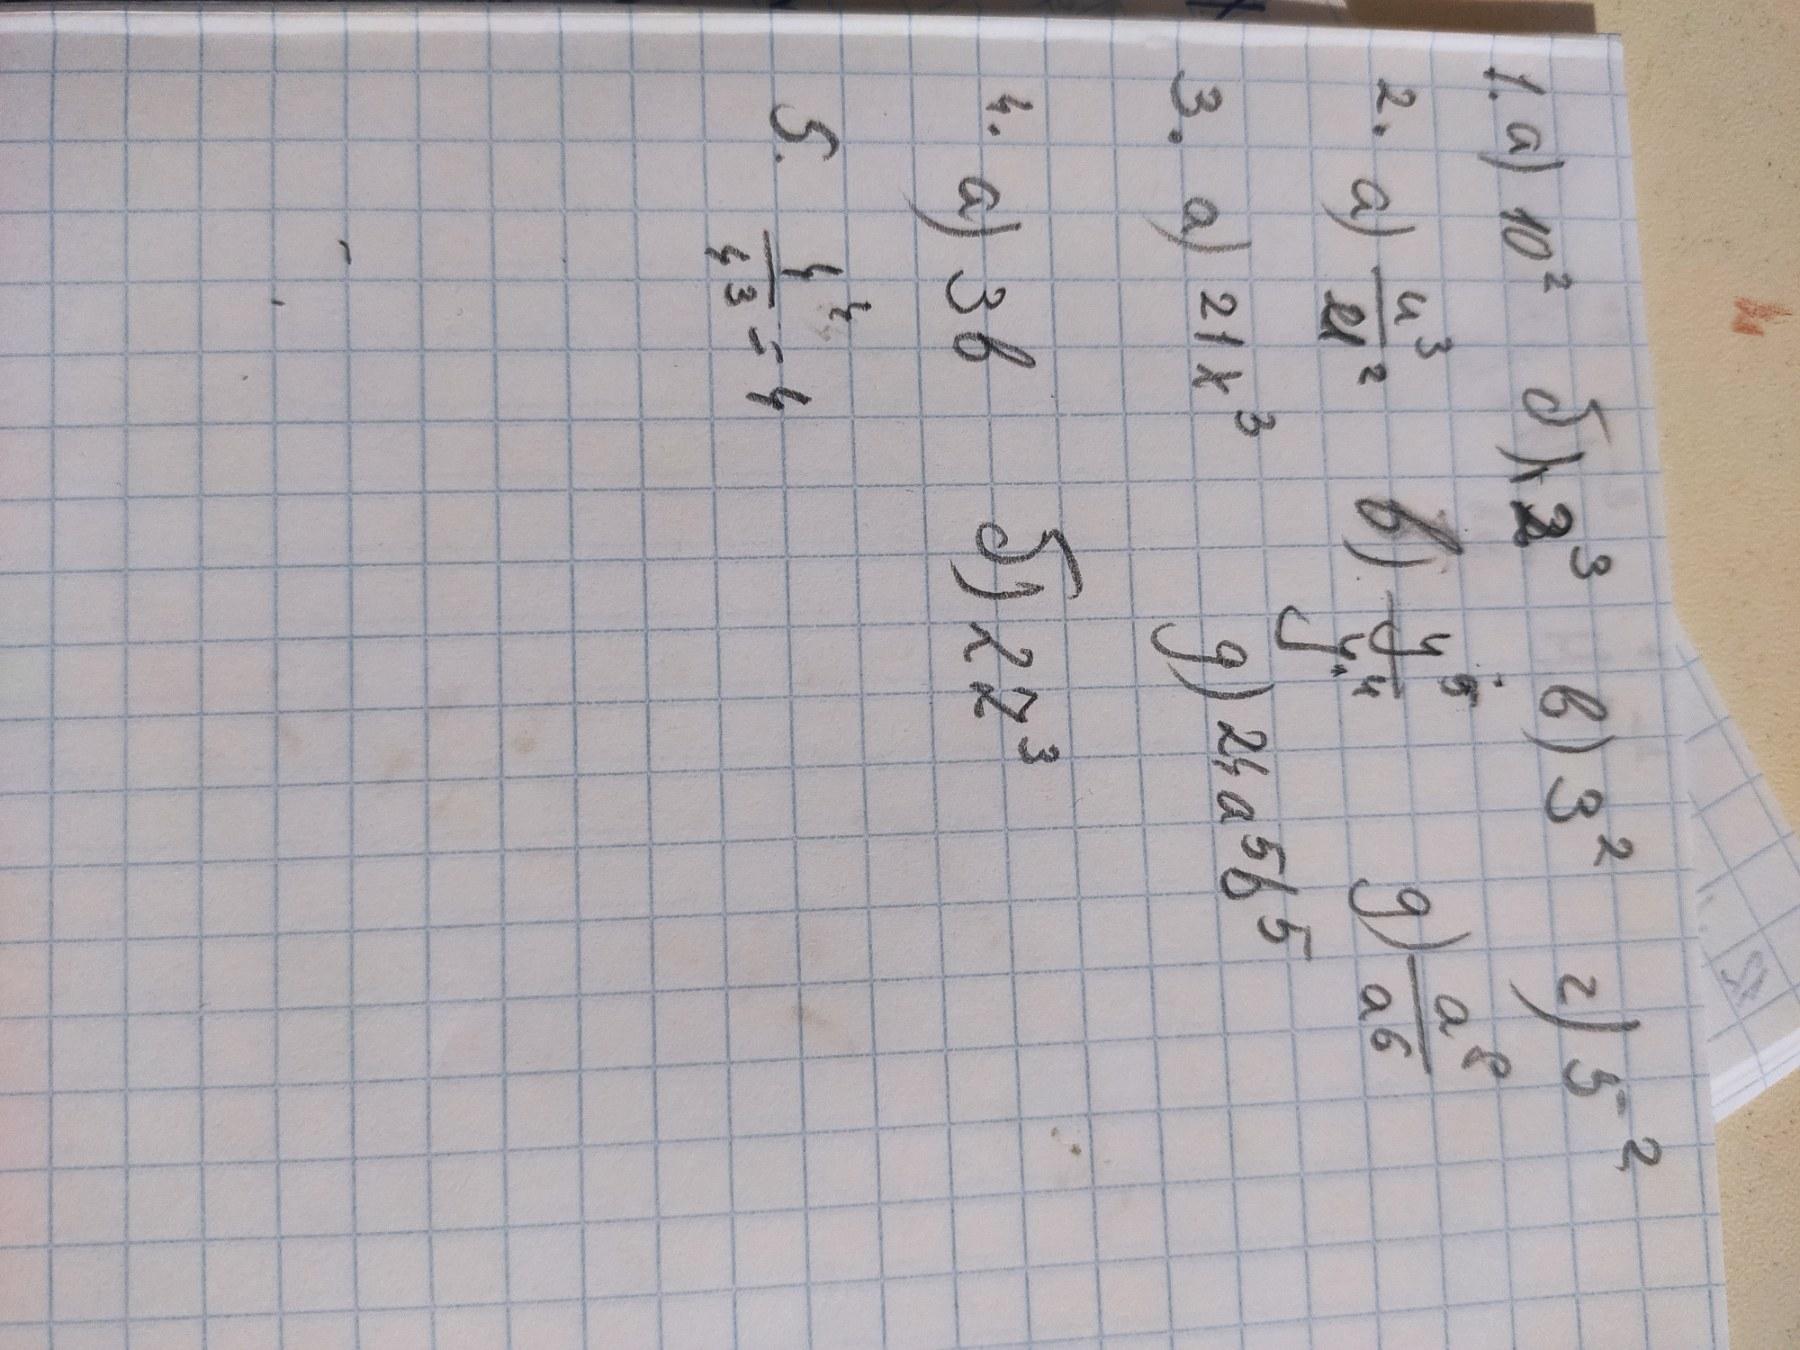 1. а) 10² б) x³ в) 3² г) 5²
2. а) u³/u² в) y⁵/y⁴ д) a⁸/a⁶
3. а) 21x³ д) 24a⁵b⁵
4. а) 3b б) 22³
5. 4⁴/4³ = 4